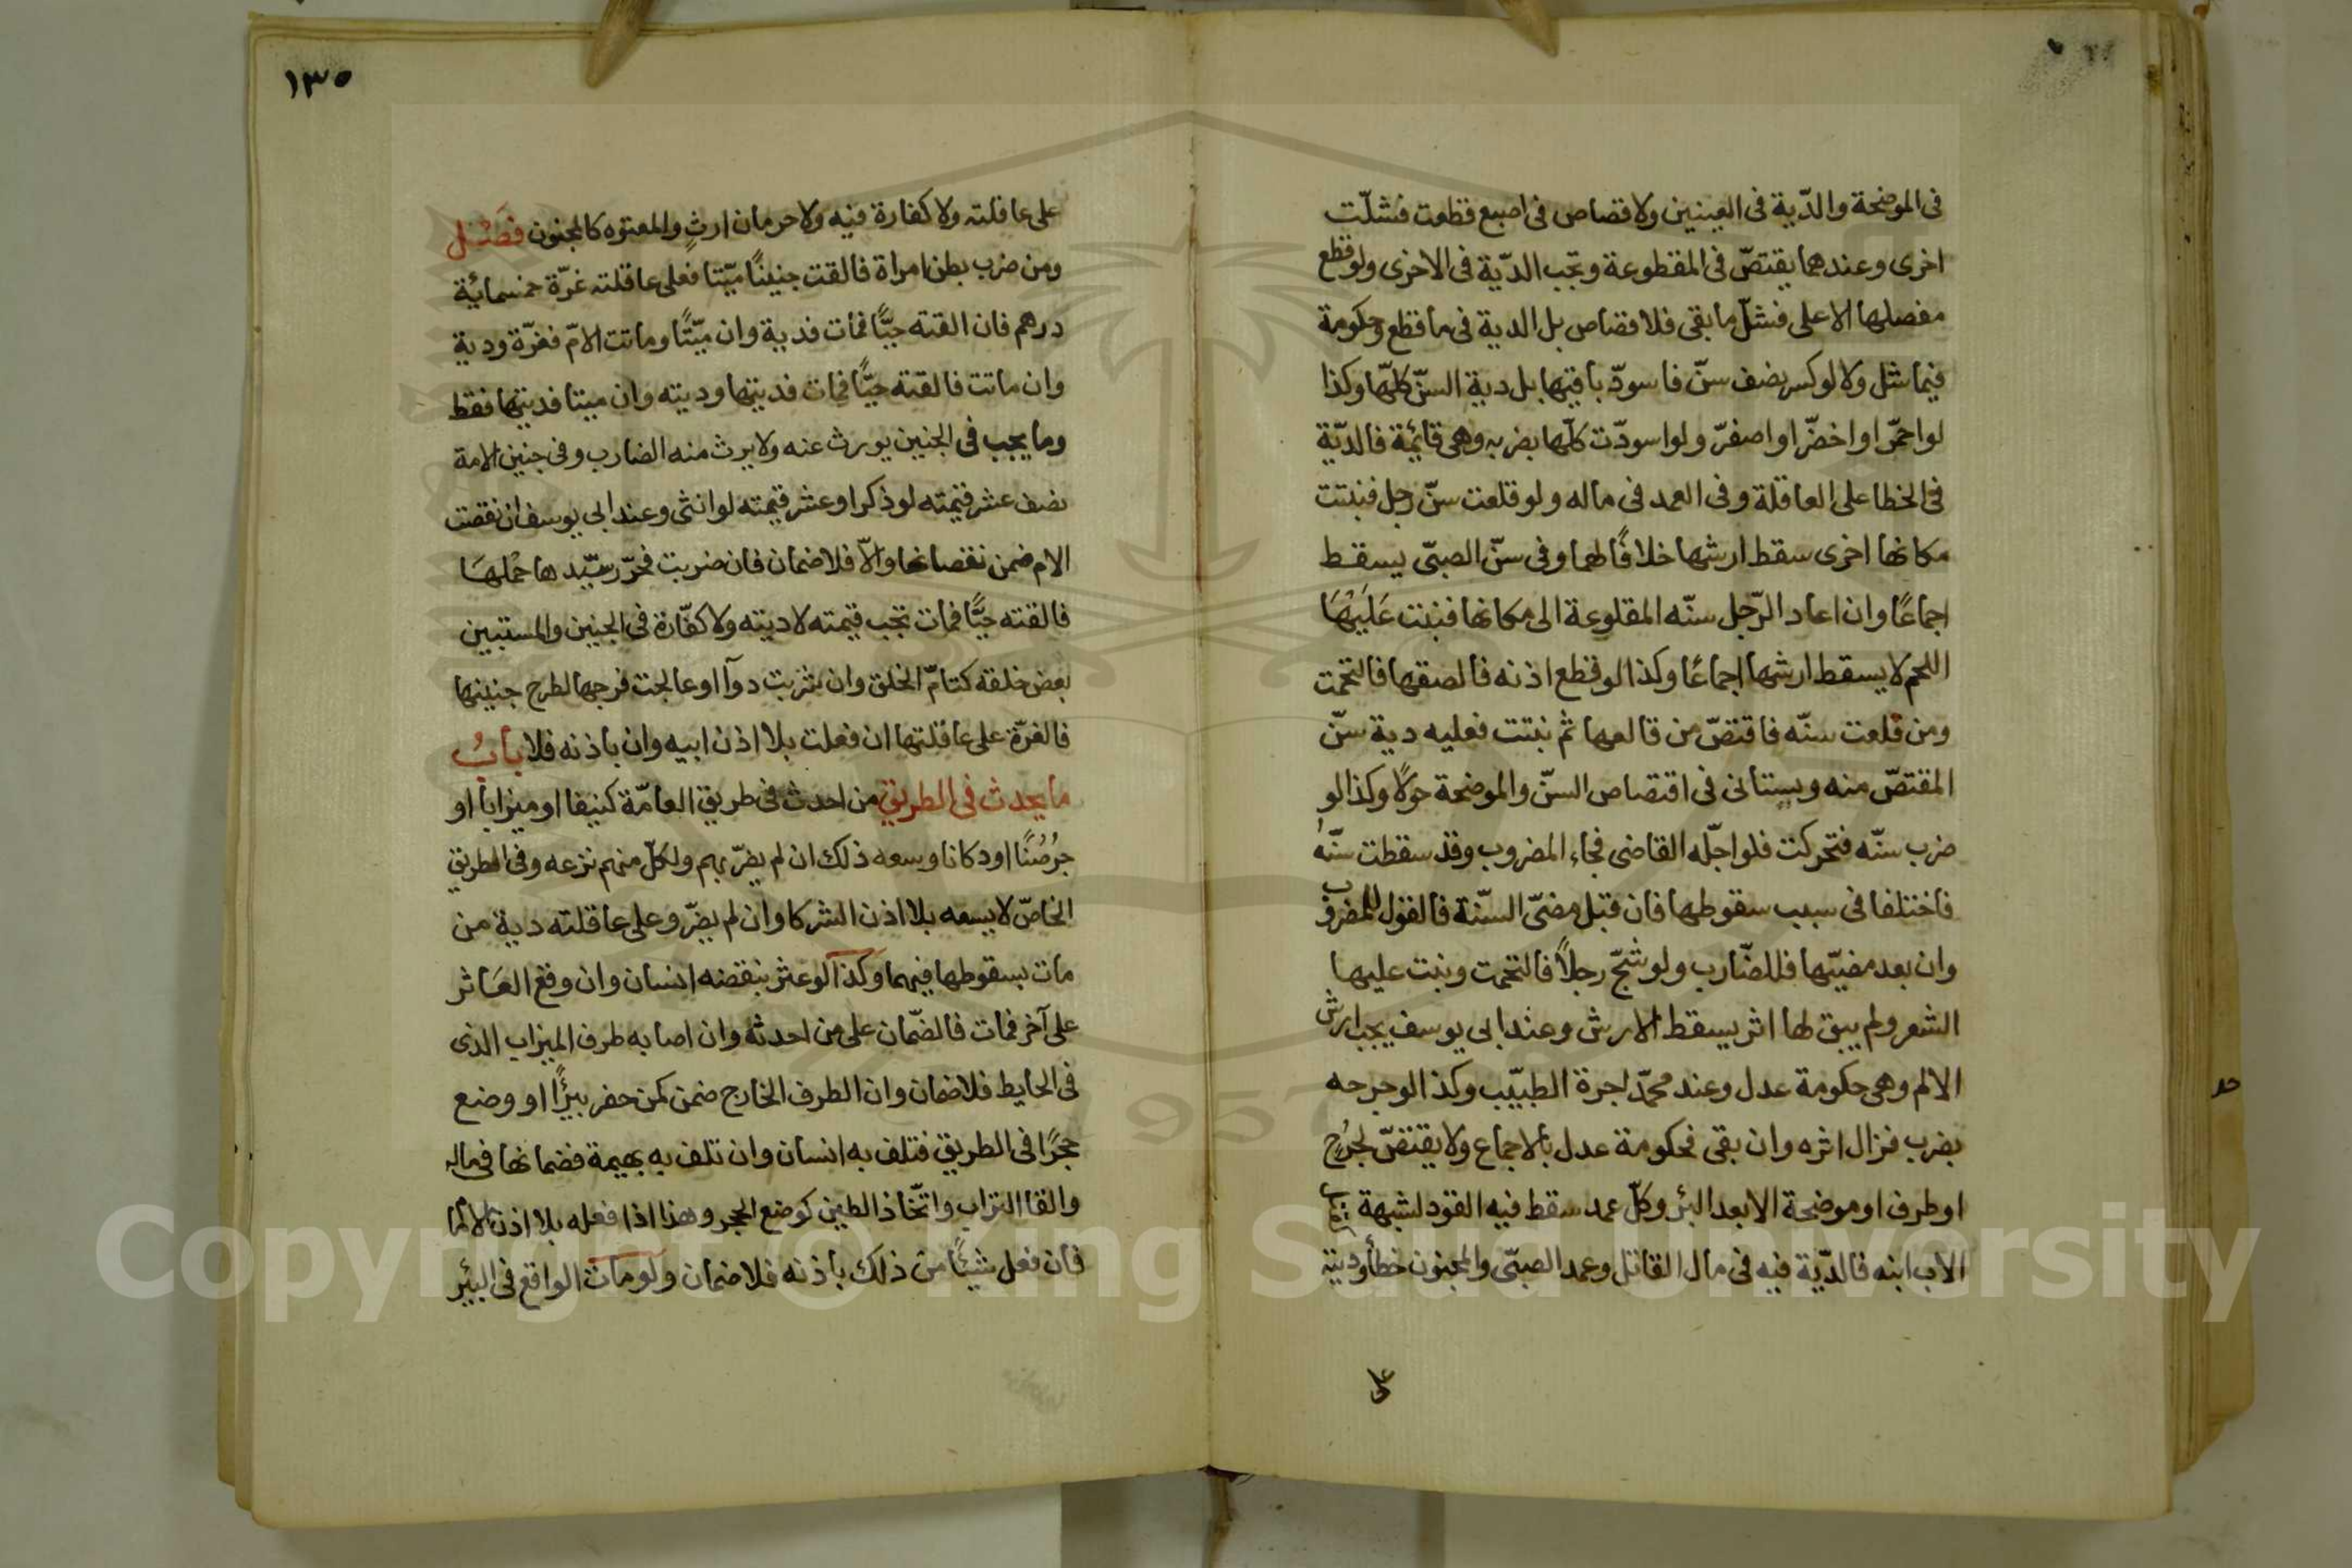 فى الموضحة والدّية فى العينين ولا قصاص فى اصبع قطعت فشلّت
اخرى وعندهما يقتصّ فى المقطوعة وتجب الدّية فى الاخرى ولو قطع
مفصلها الاعلى فشلّ ما بقى فلا قصاص بل الدية فى ما قطع وحكومة
فيما شل ولا لو كسر نصف سنّ فاسودّ باقيها بل دية السنّ كلّها وكذا
لو احمرّ او اخضرّ او اصفرّ ولو اسودّت كلّها بضربه وهى قائمة فالديّة
فى الخطا على العاقلة وفى العمد فى ماله ولو قلعت سنّ رجل فنبتت
مكانها اخرى سقط ارشها خلافًا لهما وفى سنّ الصبّى يسقط
اجماعًا وان اعاد الرّجل سنّه المقلوعة الى مكانها فنبت عَلَيْهَا
اللحم لا يسقط ارشها اجماعًا وكذا لو قطع اذنه فالصقها فالتحمت
ومن قلعت سنّه فاقتصّ من قالعها ثم نبتت فعليه دية سنّ
المقتصّ منه ويستانى فى اقتصاص السنّ والموضحة حولًا وكذا لو
ضرب سنّه فتحركت فلو اجّله القاضى فجاء المضروب وقد سقطت سنّه
فاختلفا فى سبب سقوطها فان قبل مضىّ السّنة فالقول للمضروب
وان بعد مضيّها فللضّارب ولو شجّ رجلًا فالتحمت ونبت عليها
الشعر ولم يبق لها اثر يسقط الارش وعند ابى يوسف يجب ارش
الالم وهى حكومة عدل وعند محمّد اجرة الطبّيب وكذا لو جرحه
بضرب فزال اثره وان بقى فحكومة عدل بالاجماع ولا يقتصّ لجرح
او طرف او موضحة الا بعد البئر وكلّ عمد سقط فيه القود لشبهة كقتل
الاب ابنه فالدّية فيه فى مال القاتل وعمد الصبّى والمجنون خطأ وديته
على
١٣٥
على عاقلته ولا كفارة فيه ولا حرمان ارث والمعتوه كالمجنون فَصْل
ومن ضرب بطن امراة فالقت جنينًا ميّتا فعلى عاقلته غرّة خمسمائة
درهم فان القته حيًّا فمات فدية وان ميّتًا وماتت الامّ فغرّة ودية
وان ماتت فالقته حيًّا فمات فديتها وديته وان ميتا فديتها فقط
وما يجب فى الجنين يورث عنه ولا يرث منه الضارب وفى جنين الامة
نصف عشر قيمته لو ذكرا وعشر قيمته لو انثى وعند ابى يوسف ان نقصت
الام ضمن نقصانها والّا فلا ضمان فان ضربت فحرّر سيّدها حملهَا
فالقته حيًّا فمات تجب قيمته لا ديته ولا كفّارة فى الجنين والمستبين
بعض خلقه كتامّ الخلق وان شربت دوآ او عالجت فرجها لطرح جنينها
فالغرّة على عاقلتها ان فعلت بلا اذن ابيه وان باذنه فلا بابُ
ما يحدث فى الطريق من احدث فى طريق العامّة كنيفا او ميزابا او
جرُصُنًا او دكانا وسعه ذلك ان لم يضرّ بهم ولكلّ منهم نزعه وفى الطريق
الخاصّ لا يسعه بلا اذن الشركا وان لم يضرّ وعلى عاقلته دية من
مات بسقوطها فيهما وكذا لو عثر بنقضه انسان وان وقع العَاثر
على آخر فمات فالضّمان على من احدثه وان اصابه طرف الميزاب الذى
فى الحايط فلا ضمان وان الطرف الخارج ضمن كمن حفر بيرًا او وضع
حجرًا فى الطريق فتلف به انسان وان تلف به بهيمة فضمانها فى ماله
والقا التراب واتّخاذ الطين كوضع الحجر وهذا اذا فعله بلا اذن الامام
فان فعل شيئًا من ذلك باذنه فلا ضمان ولو مات الواقع فى البئر
Copyright © King Saud University
1957